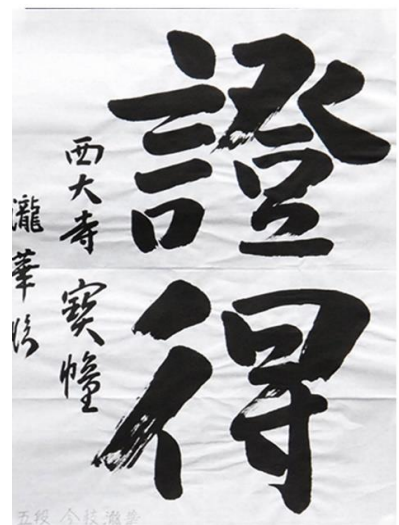 證得
西大寺 寳幢
瀧華
五段